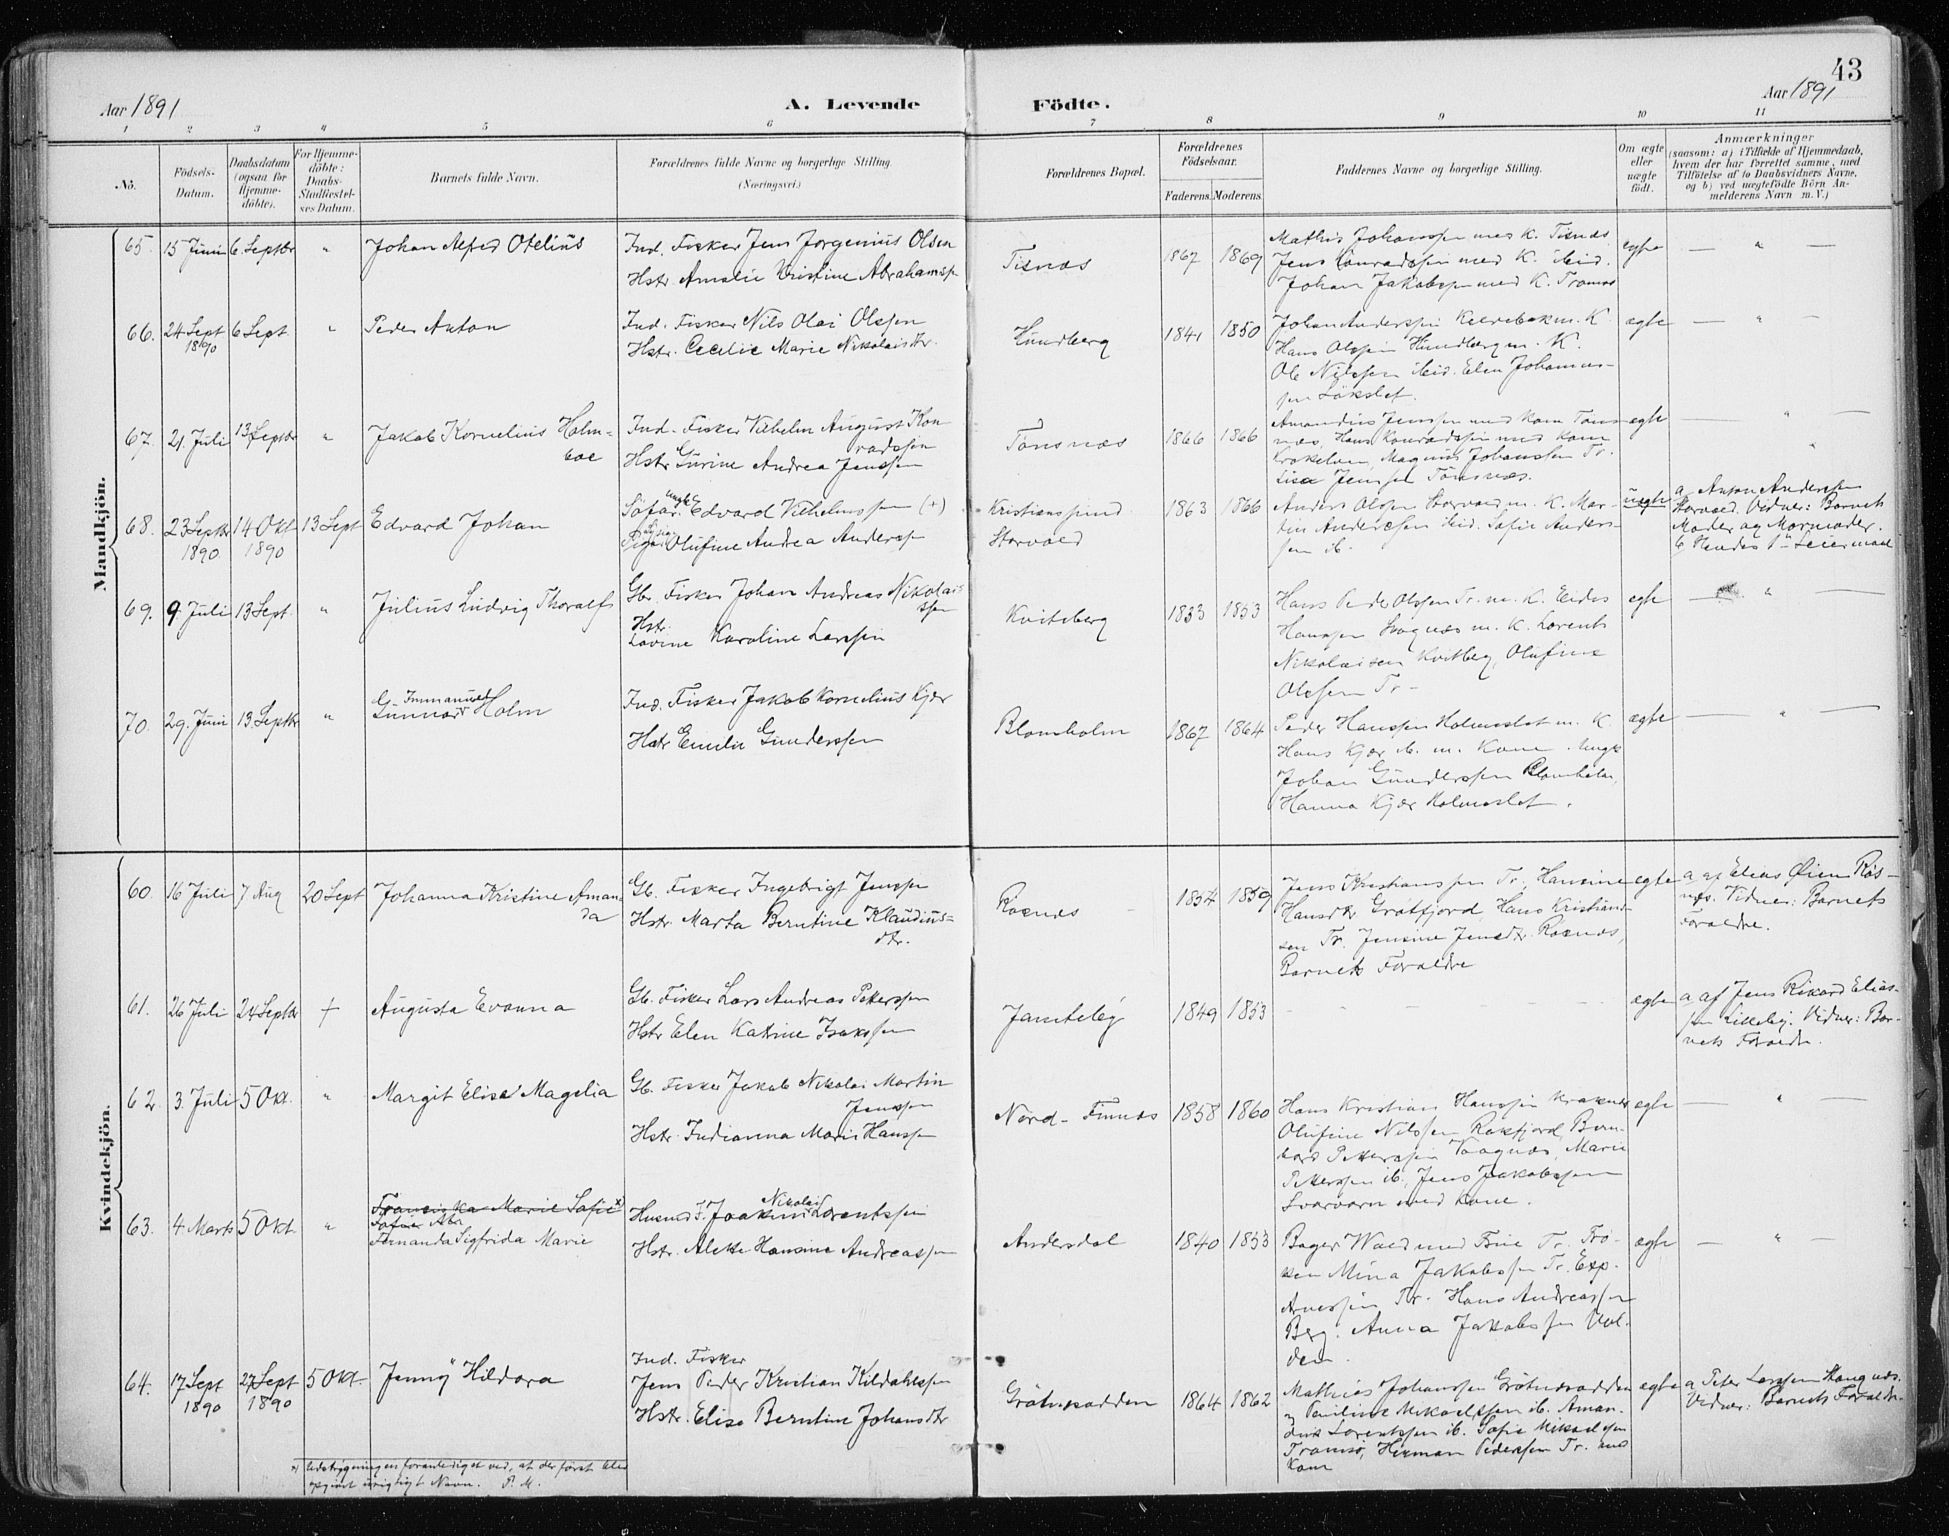 43
Aar 1891 A. Levende Födte. Aar 1891
1 2 3 4 5 6 7 8 9 10 11
No. Födsels-Datum. Daabsdatum (ogsaa för Hjemme-döbte). For Hjemme-döbte: Daabs-Stadfæstel-ses Datum. Barnets fulde Navn. Forældrenes fulde Navne og borgerlige Stilling. (Næringsvei.) Forældrenes Bopæl. Forældrenes Födselsaar. Faderens. Moderens. Faddernes Navne og borgerlige Stilling. Om ægte eller uægte födt. Anmærkninger (saasom: a) i Tilfælde af Hjemmedaab, hvem der har forrettet samme, med Tilföielse af to Daabsvidners Navne, og b) ved uægtefödte Börn An-melderens Navn m. V.)
Mandkjön.
65. 15 Juni 6 Septbr " Johan Alfred Otelius
Ind. Fisker Jens Jørgenius Olsen
Hstr. Amalie Kristine Abrahamsen
Tisnæs 1867 1869
Mathis Johanssen med K. Tisnæs
Jens Conradssen med K. ibid.
Johan Jakobssen med K. Tromsø
egte — " —
66. 24 Sept 1890 6 Sept. " Peder Anton
Ind. Fisker Nils Olai Olssen
Hstr. Cecilie Marie Nikolaisdtr.
Hundberg 1841 1850
Johan Anderssen m. K
Hans Olssen Hundberg m. K.
Ole Nilssen ibid. Elen Johannes-
sen
ægte — " —
67. 21. Juli 13 Septbr " Jakob Kornelius Holm-
boe
Ind. Fisker Vilhelm August Kon
radssen
Hstr Gurine Andrea Jenssen
Tønsnæs 1866 1866
Amandus Jenssen med Kone Tøns
næs, Hans Konradssen med Kone
Krokelven, Magnus Johanssen Tr.
Lisa Jenssen Tønsnæs.
egte — " —
68. 23 Septbr 1890 14 Okt 1890 13 Sept Edvard Johan
Søfar. Ungk. Edvard Vilhelmssen (+)
Pige Olufine Andrea Anderss.
Kristianssund
Storvoed
1863 1866
Anders Olsen Storvoed m. K. Mar-
tin Anderssen ibid. Sofie Anders-
sen ib.
uegte
a, Anton Anderssen
Storvoed. Vidner: Barnets
Moder og Mormoder.
b Hendes 1ste Leiermaal
69. 9. Juli 13 Sept. " Julius Ludvig Thoralf
Gb. Fisker Johan Andreas Nikolai
ssen
Hstr.
Lovine Karoline Larssen
Kviteberg 1853 1853
Hans Peder Olssen Tr. m. K.
Hanssen m. K. Lorents
Nikolaisen Kvitbeg, Olufine
Olssen Tr -
egte — " —
70. 29. Juni 13 Septbr "
Immanuel
Gunnar Holm
Ind. Fisker Jakob Kornelius Kjær
Hstr Emilie Gunderssen
Blomholm 1867 1864
Peder Hanssen Holmeslet m. K
Hans Kjær ib. m. Kone. Ungk
Johan Gunderssen Blomholm,
Hanna Kjær Holmeslet.
ægte — " —
Kvindekjön.
60. 16 Juli 7 Aug 20 Sept Johanna Kristine Aman-
da
Gb. Fisker Ingebrigt Jenssen
Hstr. Marta Berntine Klaudius-
dtr.
Roxnæs 1854 1859
Jens Kristianssen Tr. Hansine
Hansdtr Grøtfjord, Hans Kristian-
sen Tr. Jensine Jensdtr. Roxnæs,
Barnets Forældre
egte
a af Elias Øien Røs-
næs. Vidner: Barnets
Forældre.
61. 26 Juli 24 Septbr + Augusta Evanna
Gb. Fisker Lars Andreas Pettersen
Hstr Elen Katrine Isakssen
1849 1853
egte
a af Jens Rikard Elias-
sen Lilleby. Vidner: Bar-
nets Forældre.
62. 3. Juli 5 Okt. " Margit Elise Magelia
Gb. Fisker Jakob Nikolai Martin
Jenssen
Hstr. Indianna Marie Hanssen
Nord-Finnæs 1858 1860
Hans Kristian Hanssen
Olufine Nilssen Rakfjord, Bern-
hard Petterssen Vaagnæs, Marie
Petterssen ib., Jens Jakobssen
Svarvarn med Kone.
egte — " —
63. 4 Marts 5 Okt. "
Franciska Marie Sofie x)
Fernanda Sigfrida Marie
Husmd F. Joakim Nikolai Lorentssen
Hstr. Aleke Hansine Andreassen
Andersdal 1840 1853
Bager Wold med Tr. Frø-
ken Mina Jakobssen Tr. Exp.
Arnessen Tr. Hans Andreassen
Berg. Anna Jakobssen Vol-
den.
ægte — " —
64. 17 Sept 1890 27 Sept 1890 5 Okt. Jenny Hildora
Ind. Fisker
Jens Peder Kristian Kildahlssen
Hstr. Elise Berntine Johansdtr
Grøtnesodden 1864 1862
Mathias Johanssen Grøtnesodden
og Pauline Mikaelssen ib. Aman-
dus Lorentssen ib. Sofie Mikaelssen
Tromsø, Herman Pederssen Tr. med
Kone
egte
a Peter Larssen
Vidner: Barnets Forældre.
x) Udstrygningen foranlediget ved, at der først blev
opgivet urigtigt Navn. P. M.